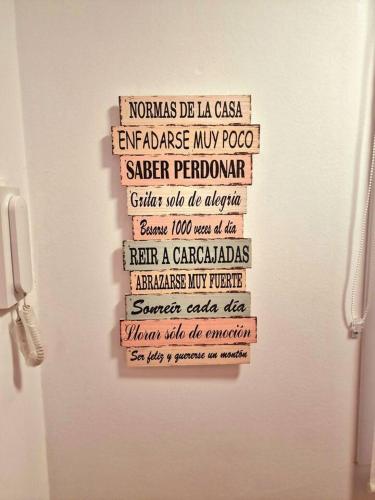 NORMAS DE LA CASA
ENFADARSE MUY POCO
SABER PERDONAR
Gritar solo de alegria
Besarse 1000 veces al día
REIR A CARCAJADAS
ABRAZARSE MUY FUERTE
Sonreír cada día
Llorar sólo de emoción
Ser feliz y quererse un montón